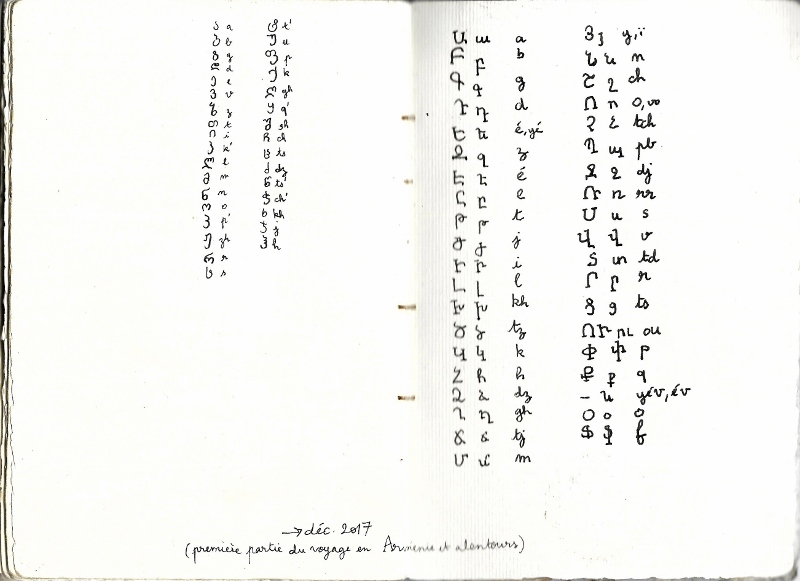 ა a
ბ b
გ g
დ d
ე e
ვ v
ზ z
თ t
ი i
კ k'
ლ l
მ m
ნ n
ო o
პ p'
ჟ zh
რ r
ს s
ტ t'
უ u
ფ p
ქ k
ღ gh
ყ q'
შ sh
ჩ ch
ც ts
ძ dz
წ ts'
ჭ ch'
ხ kh
ჯ j
ჰ h
→ déc. 2017
(première partie du voyage en Arménie et alentours)
Ա ա a
Բ բ b
Գ գ g
Դ դ d
Ե ե é, yé
Զ զ z
Է է é
Ը ը e
Թ թ t
Ժ ժ j
Ի ի i
Լ լ l
Խ խ kh
Ծ ծ tz
Կ կ k
Հ հ h
Ձ ձ dz
Ղ ղ gh
Ճ ճ tj
Մ մ m
Յ յ y, ï
Ն ն n
Շ շ ch
Ո ո o, vo
Չ չ tch
Պ պ pb
Ջ ջ dj
Ռ ռ rr
Ս ս s
Վ վ v
Տ տ td
Ր ր r
Ց ց ts
ՈՒ ու ou
Փ փ p
Ք ք q
– և yév, év
Օ օ o
Ֆ ֆ f